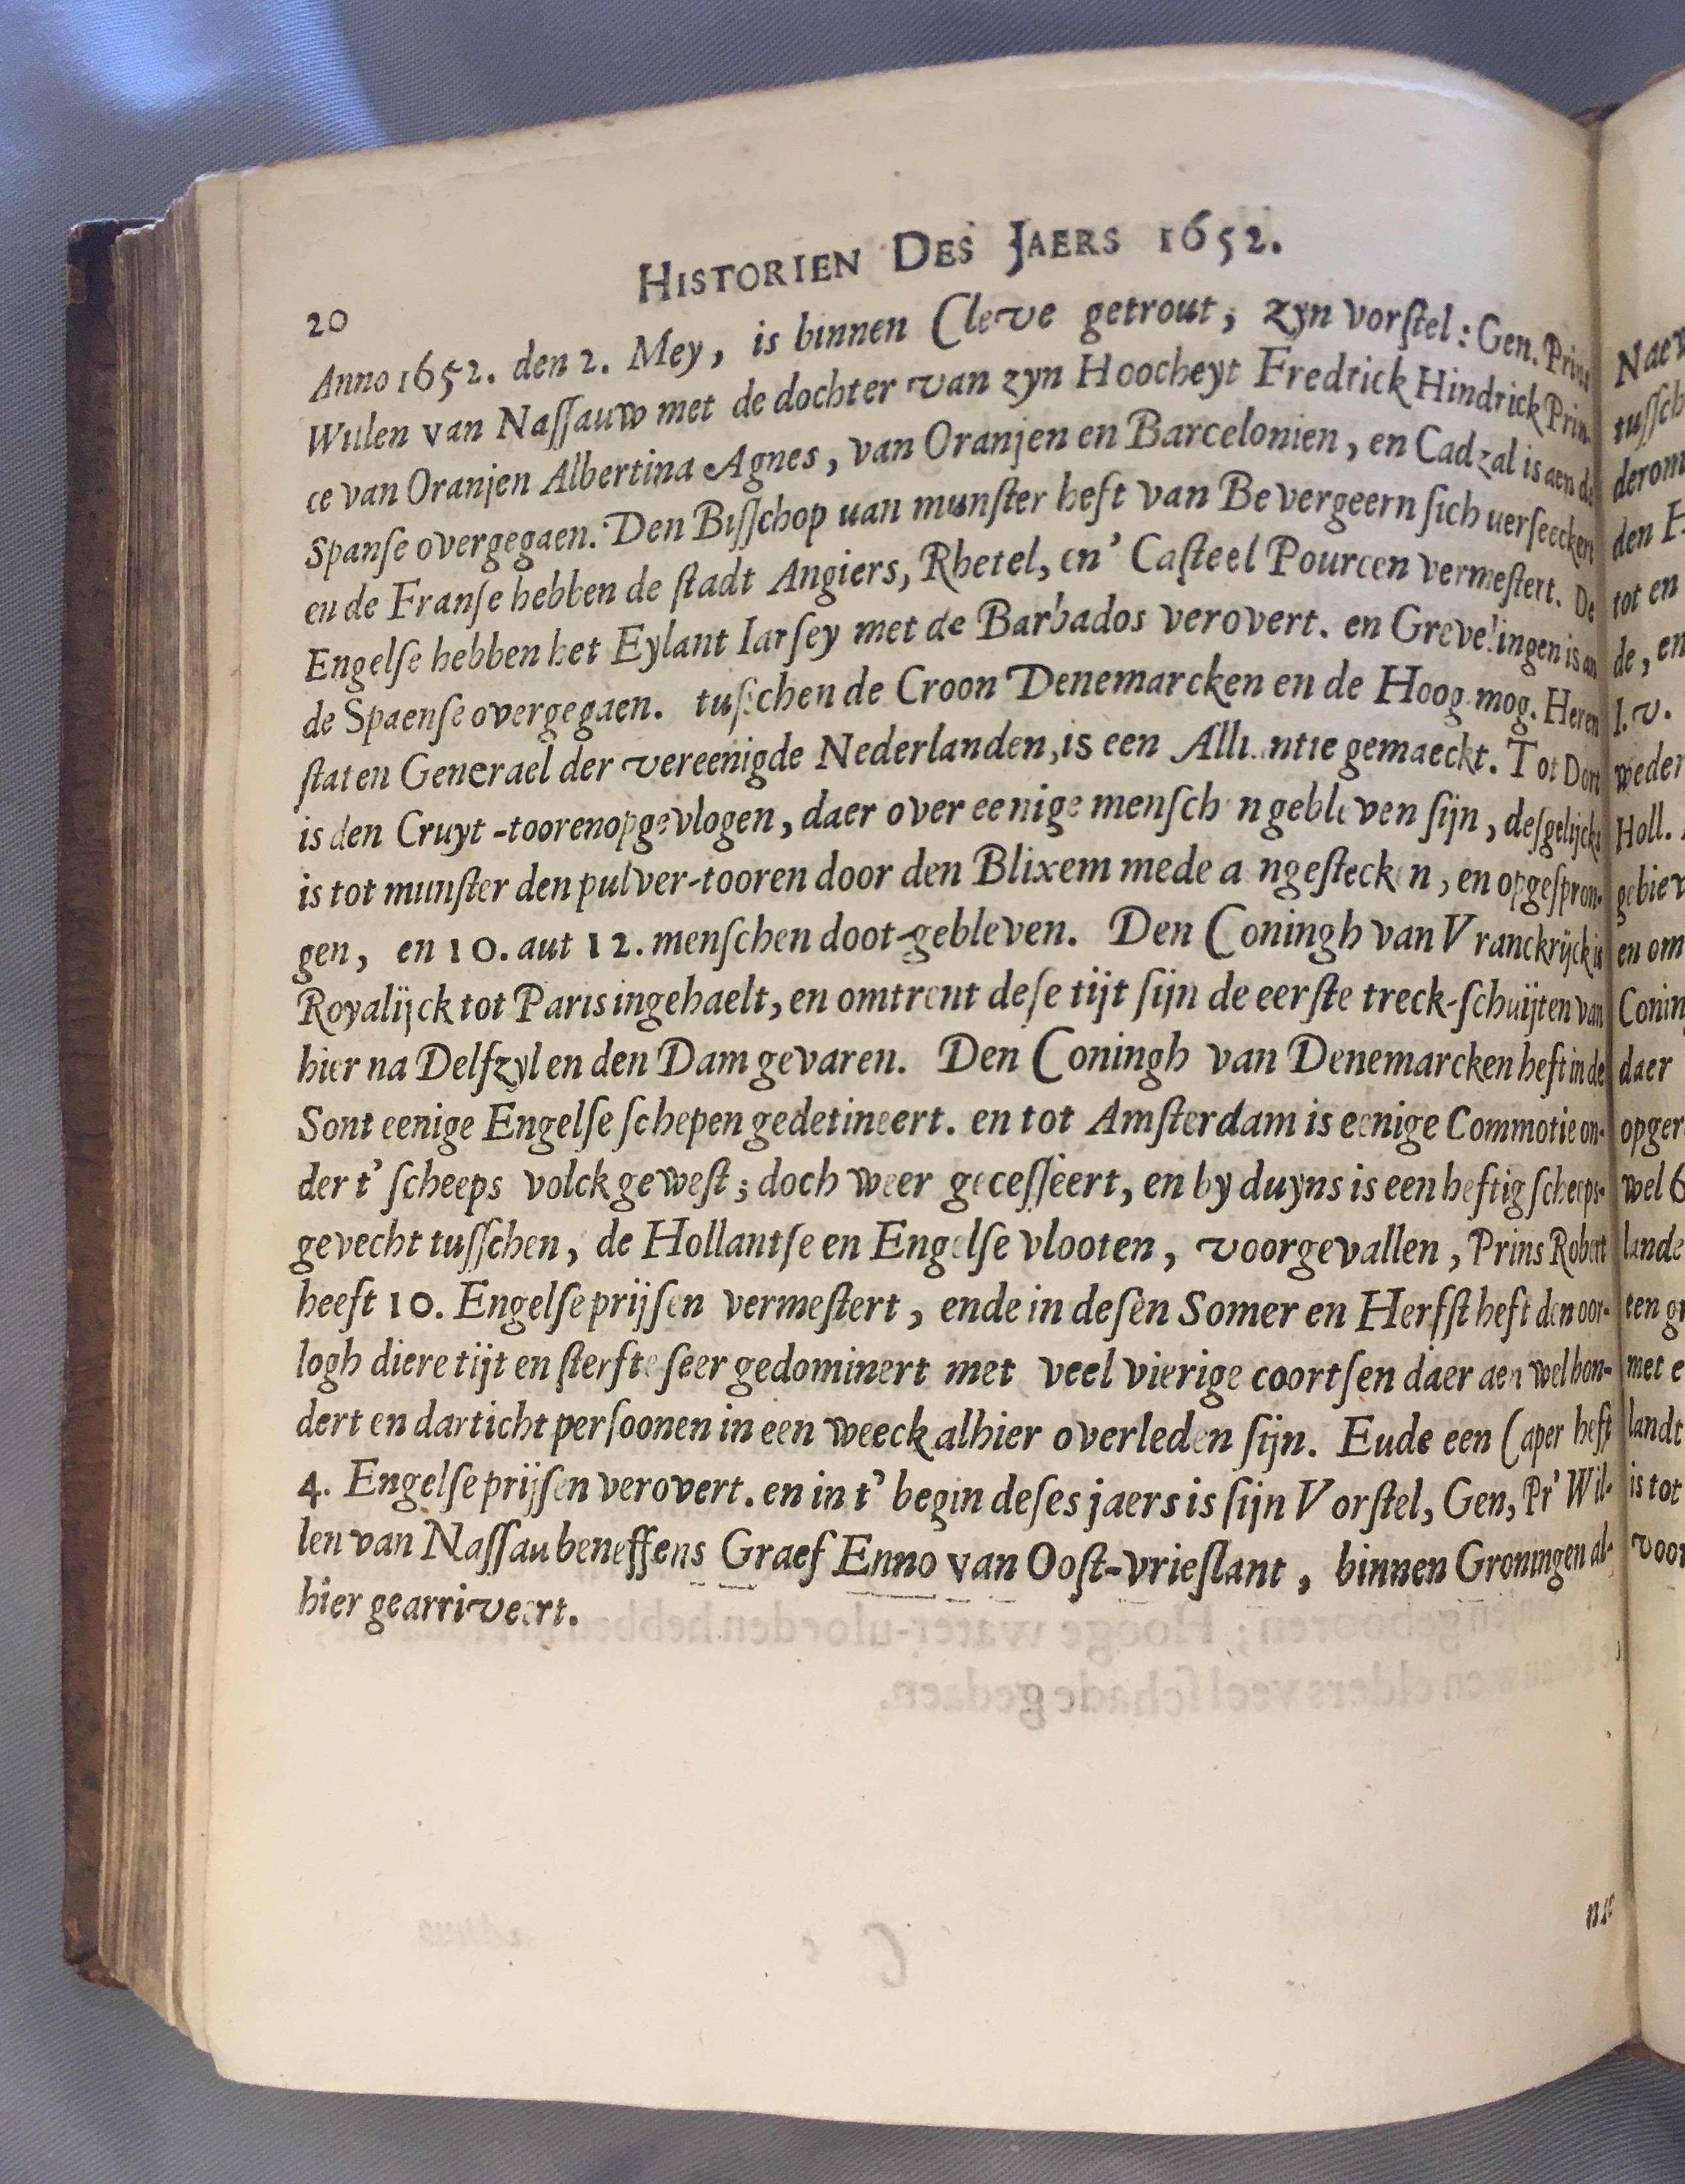 HISTORIEN DES JAERS 1652.
20
Anno 1652. den 2. Mey, is binnen Cleve getrout, zyn vorſtel: Gen. Prins
Willen van Naſſauw met de dochter van zyn Hoocheyt Fredrick Hindrick Prin-
ce van Oranjen Albertina Agnes, van Oranjen en Barcelonien, en Cadzal is aen de
Spanſe overgegaen. Den Biſſchop uan munſter heft van Bevergeern ſich uerſeeckert
en de Franſe hebben de ſtadt Angiers, Rhetel, en' Caſteel Pourcen vermeſtert. De
Engelſe hebben het Eylant Iarſey met de Barbados verovert. en Grevelingen is an
de Spaenſe overgegaen. tuſſchen de Croon Denemarcken en de Hoog mog. Heren
ſtaten Generael der vereenigde Nederlanden, is een Alliantie gemaeckt. Tot Dort
is den Cruyt-tooren opgevlogen, daer over eenige menſchen gebleven ſijn, deſgelijcks
is tot munſter den pulver-tooren door den Blixem mede aengeſtecken, en opgeſpron-
gen, en 10. aut 12. menſchen doot-gebleven. Den Coningh van Vranckrijck is
Royalijck tot Paris ingehaelt, en omtrent deſe tijt ſijn de eerſte treck-ſchuijten van
hier na Delfzyl en den Dam gevaren. Den Coningh van Denemarcken heft in de
Sont eenige Engelſe ſchepen gedetineert. en tot Amſterdam is eenige Commotie on-
der t' ſcheeps volck geweſt; doch weer geceſſeert, en by duyns is een heftig ſcheeps-
gevecht tuſſchen, de Hollantſe en Engelſe vlooten, voorgevallen, Prins Robert
heeft 10. Engelſe prijſen vermeſtert, ende in deſen Somer en Herfſt heft den oor-
logh diere tijt en ſterfte ſeer gedominert met veel vierige coortſen daer aen wel hon-
dert en darticht perſoonen in een weeck alhier overleden ſijn. Eude een Caper heft
4. Engelſe prijſen verovert. en in t' begin deſes jaers is ſijn Vorſtel, Gen, Pr' Wil-
len van Naſſau beneffens Graef Enno van Ooſt-vrieſlant, binnen Groningen al-
hier gearriveert.